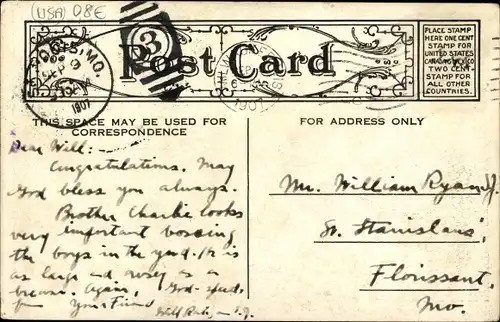 (USA) 08E
ST. LOUIS, MO.
1907
3
Post Card
1907
PLACE STAMP
HERE ONE CENT
STAMP FOR
UNITED STATES
TWO CENT
STAMP FOR
ALL OTHER
COUNTRIES.
THIS SPACE MAY BE USED FOR
CORRESPONDENCE
FOR ADDRESS ONLY
Dear Will:
Congratulations. May
God bless you always.
Brother Charlie looks
very important bossing
the boys in the yard. He is
as large and as a
Again, God-speed,
from Your Friend
Will S.J.
Mr. William Ryan S.J.
St. Stanislaus,
Florissant,
Mo.